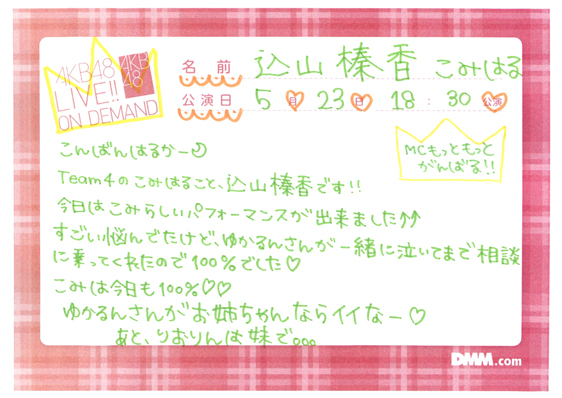 AKB48
LIVE!!
ON DEMAND
AKB
48
名前 込山榛香 こみはる
公演日 5月23日 18:30公演
MCもっともっと
がんばる!!
こんばんはるかー
Team4のこみはること、込山榛香です!!
今日はこみらしいパフォーマンスが出来ました↑↑
すごい悩んでたけど、ゆかるんさんが一緒に泣いてまで相談
に乗ってくれたので100%でした♡
こみは今日も100%♡♡
ゆかるんさんがお姉ちゃんならイイなー♡
あと、りおりんは妹で。。。
DMM.com